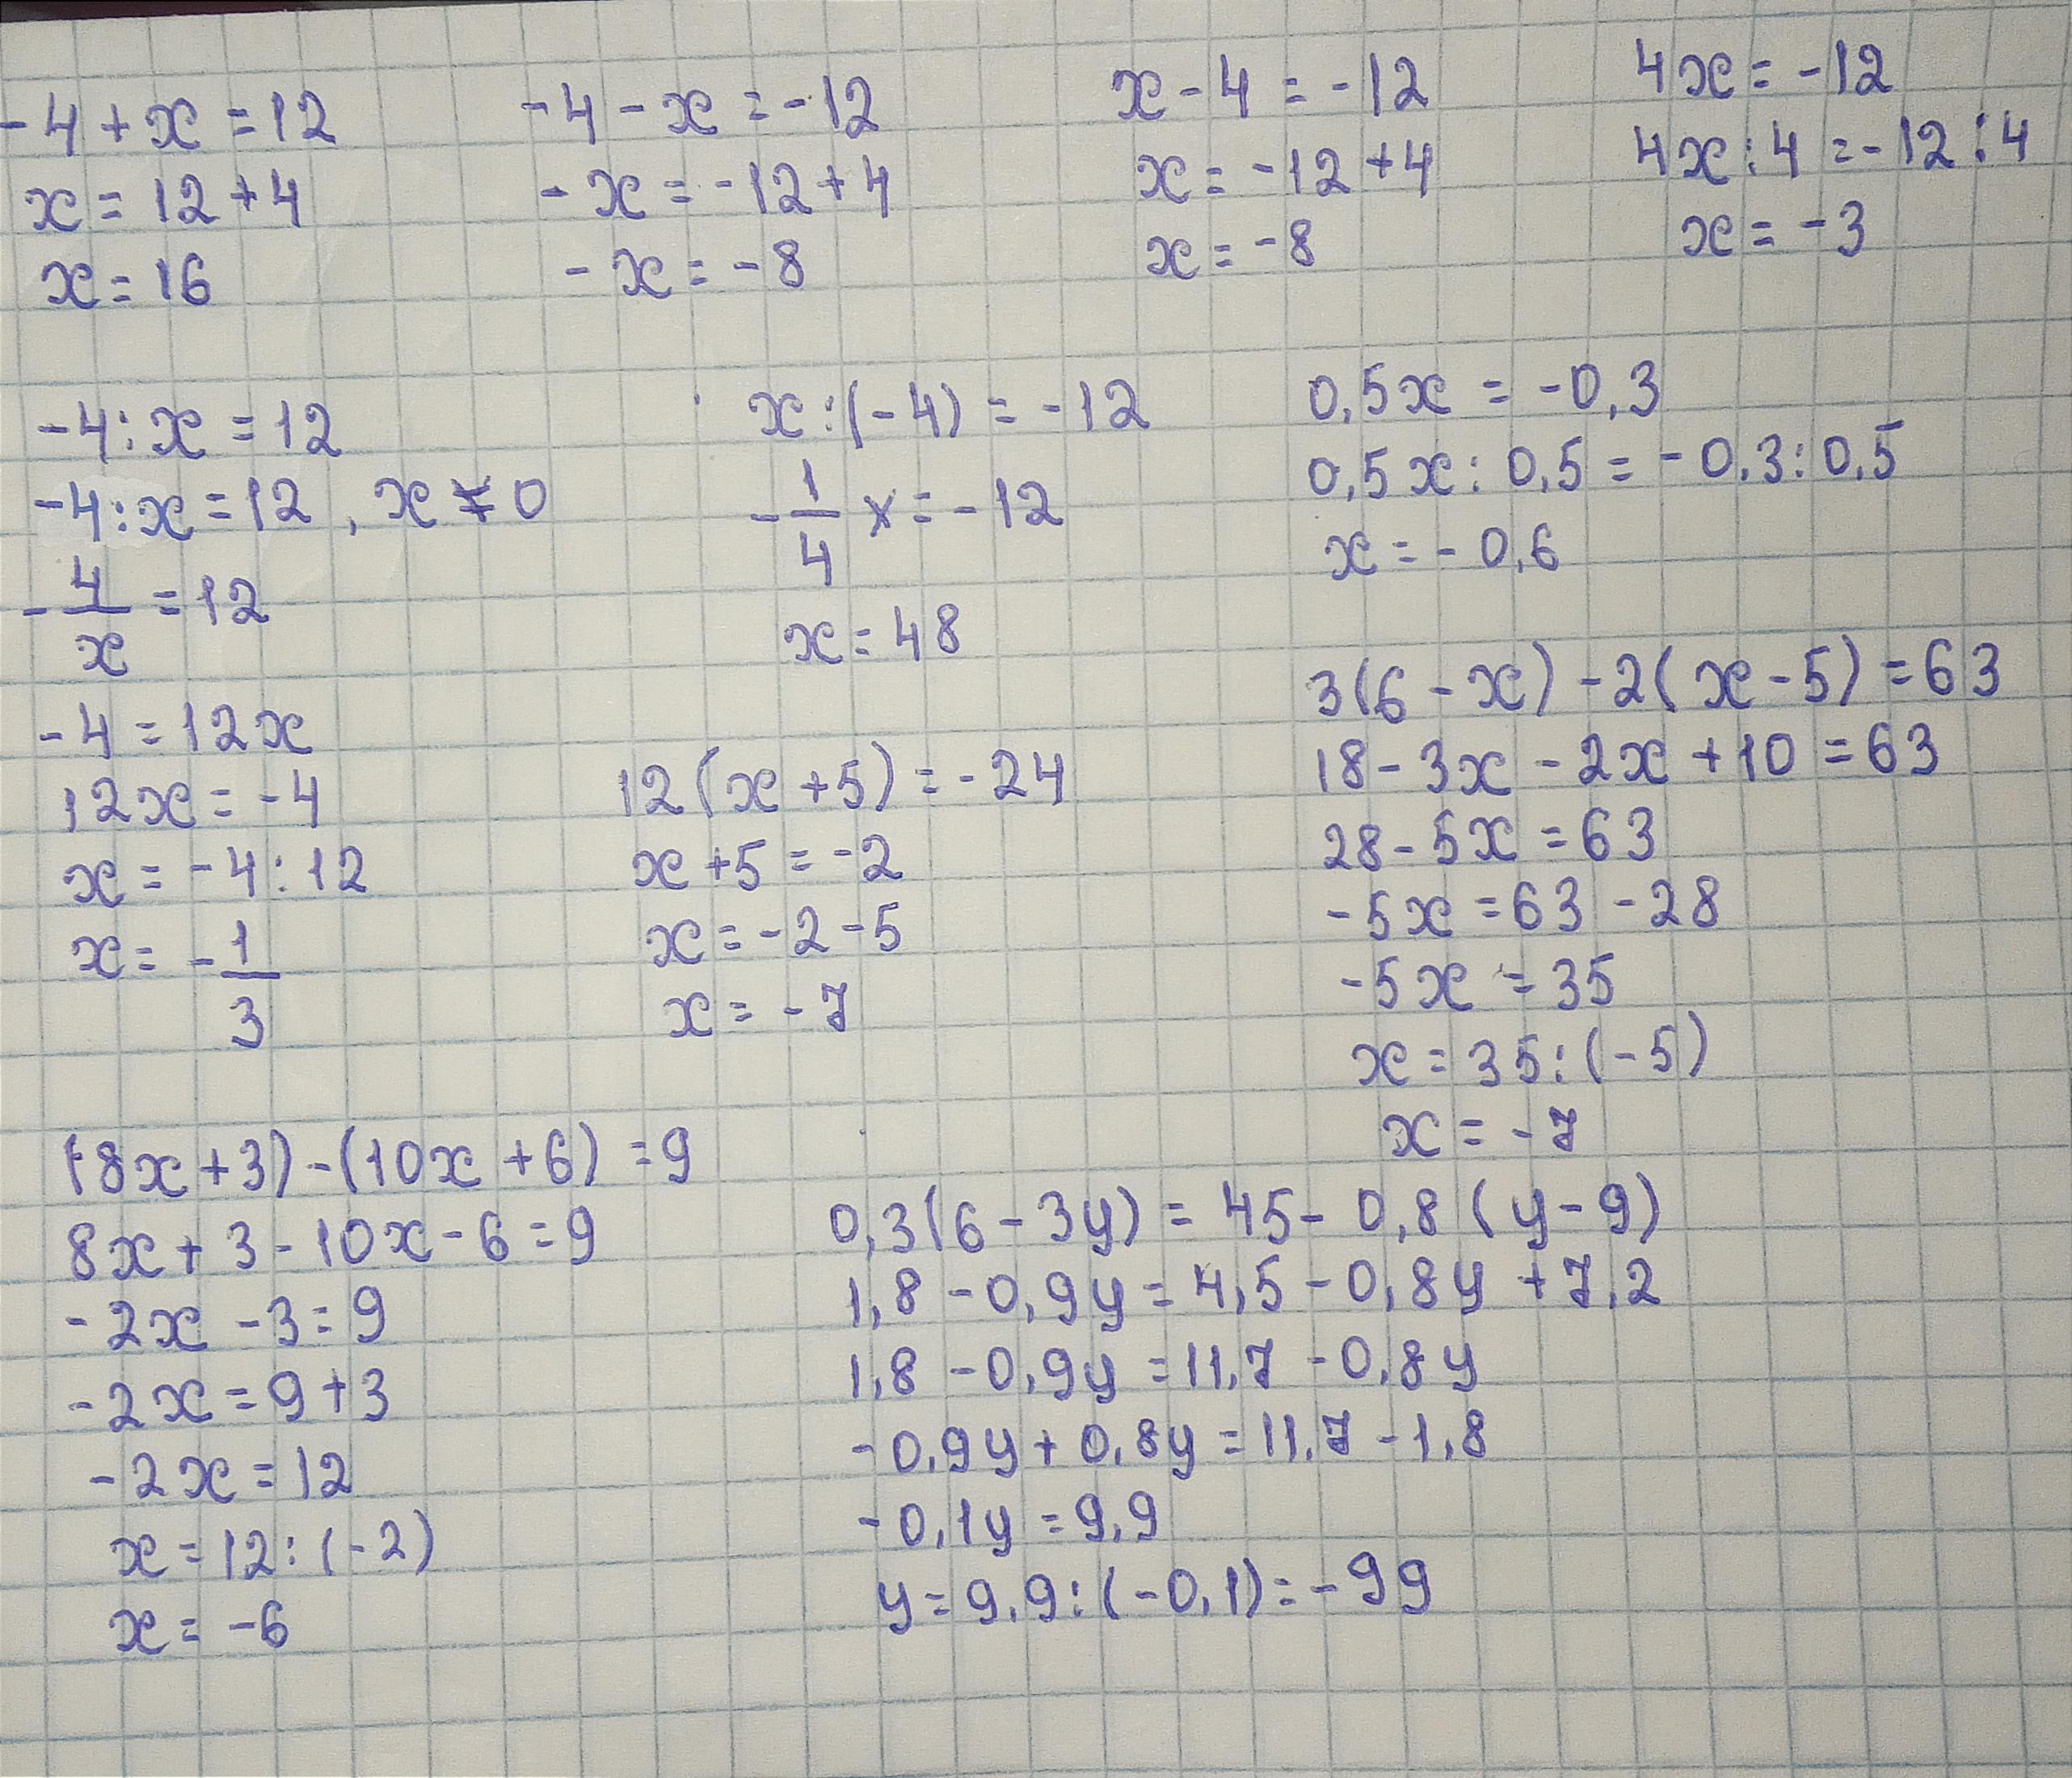 -4+x=12
x=12+4
x=16
-4-x=-12
-x=-12+4
-x=-8
x-4=-12
x=-12+4
x=-8
4x=-12
4x:4=-12:4
x=-3
-4:x=12
-4:x=12, x≠0
-4/x=12
-4=12x
12x=-4
x=-4:12
x=-1/3
x:(-4)=-12
-1/4 x=-12
x=48
0,5x=-0,3
0,5x:0,5=-0,3:0,5
x=-0,6
12(x+5)=-24
x+5=-2
x=-2-5
x=-7
3(6-x)-2(x-5)=63
18-3x-2x+10=63
28-5x=63
-5x=63-28
-5x=35
x=35:(-5)
x=-7
(8x+3)-(10x+6)=9
8x+3-10x-6=9
-2x-3=9
-2x=9+3
-2x=12
x=12:(-2)
x=-6
0,3(6-3y)=45-0,8(y-9)
1,8-0,9y=4,5-0,8y+7,2
1,8-0,9y=11,7-0,8y
-0,9y+0,8y=11,7-1,8
-0,1y=9,9
y=9,9:(-0,1)=-99